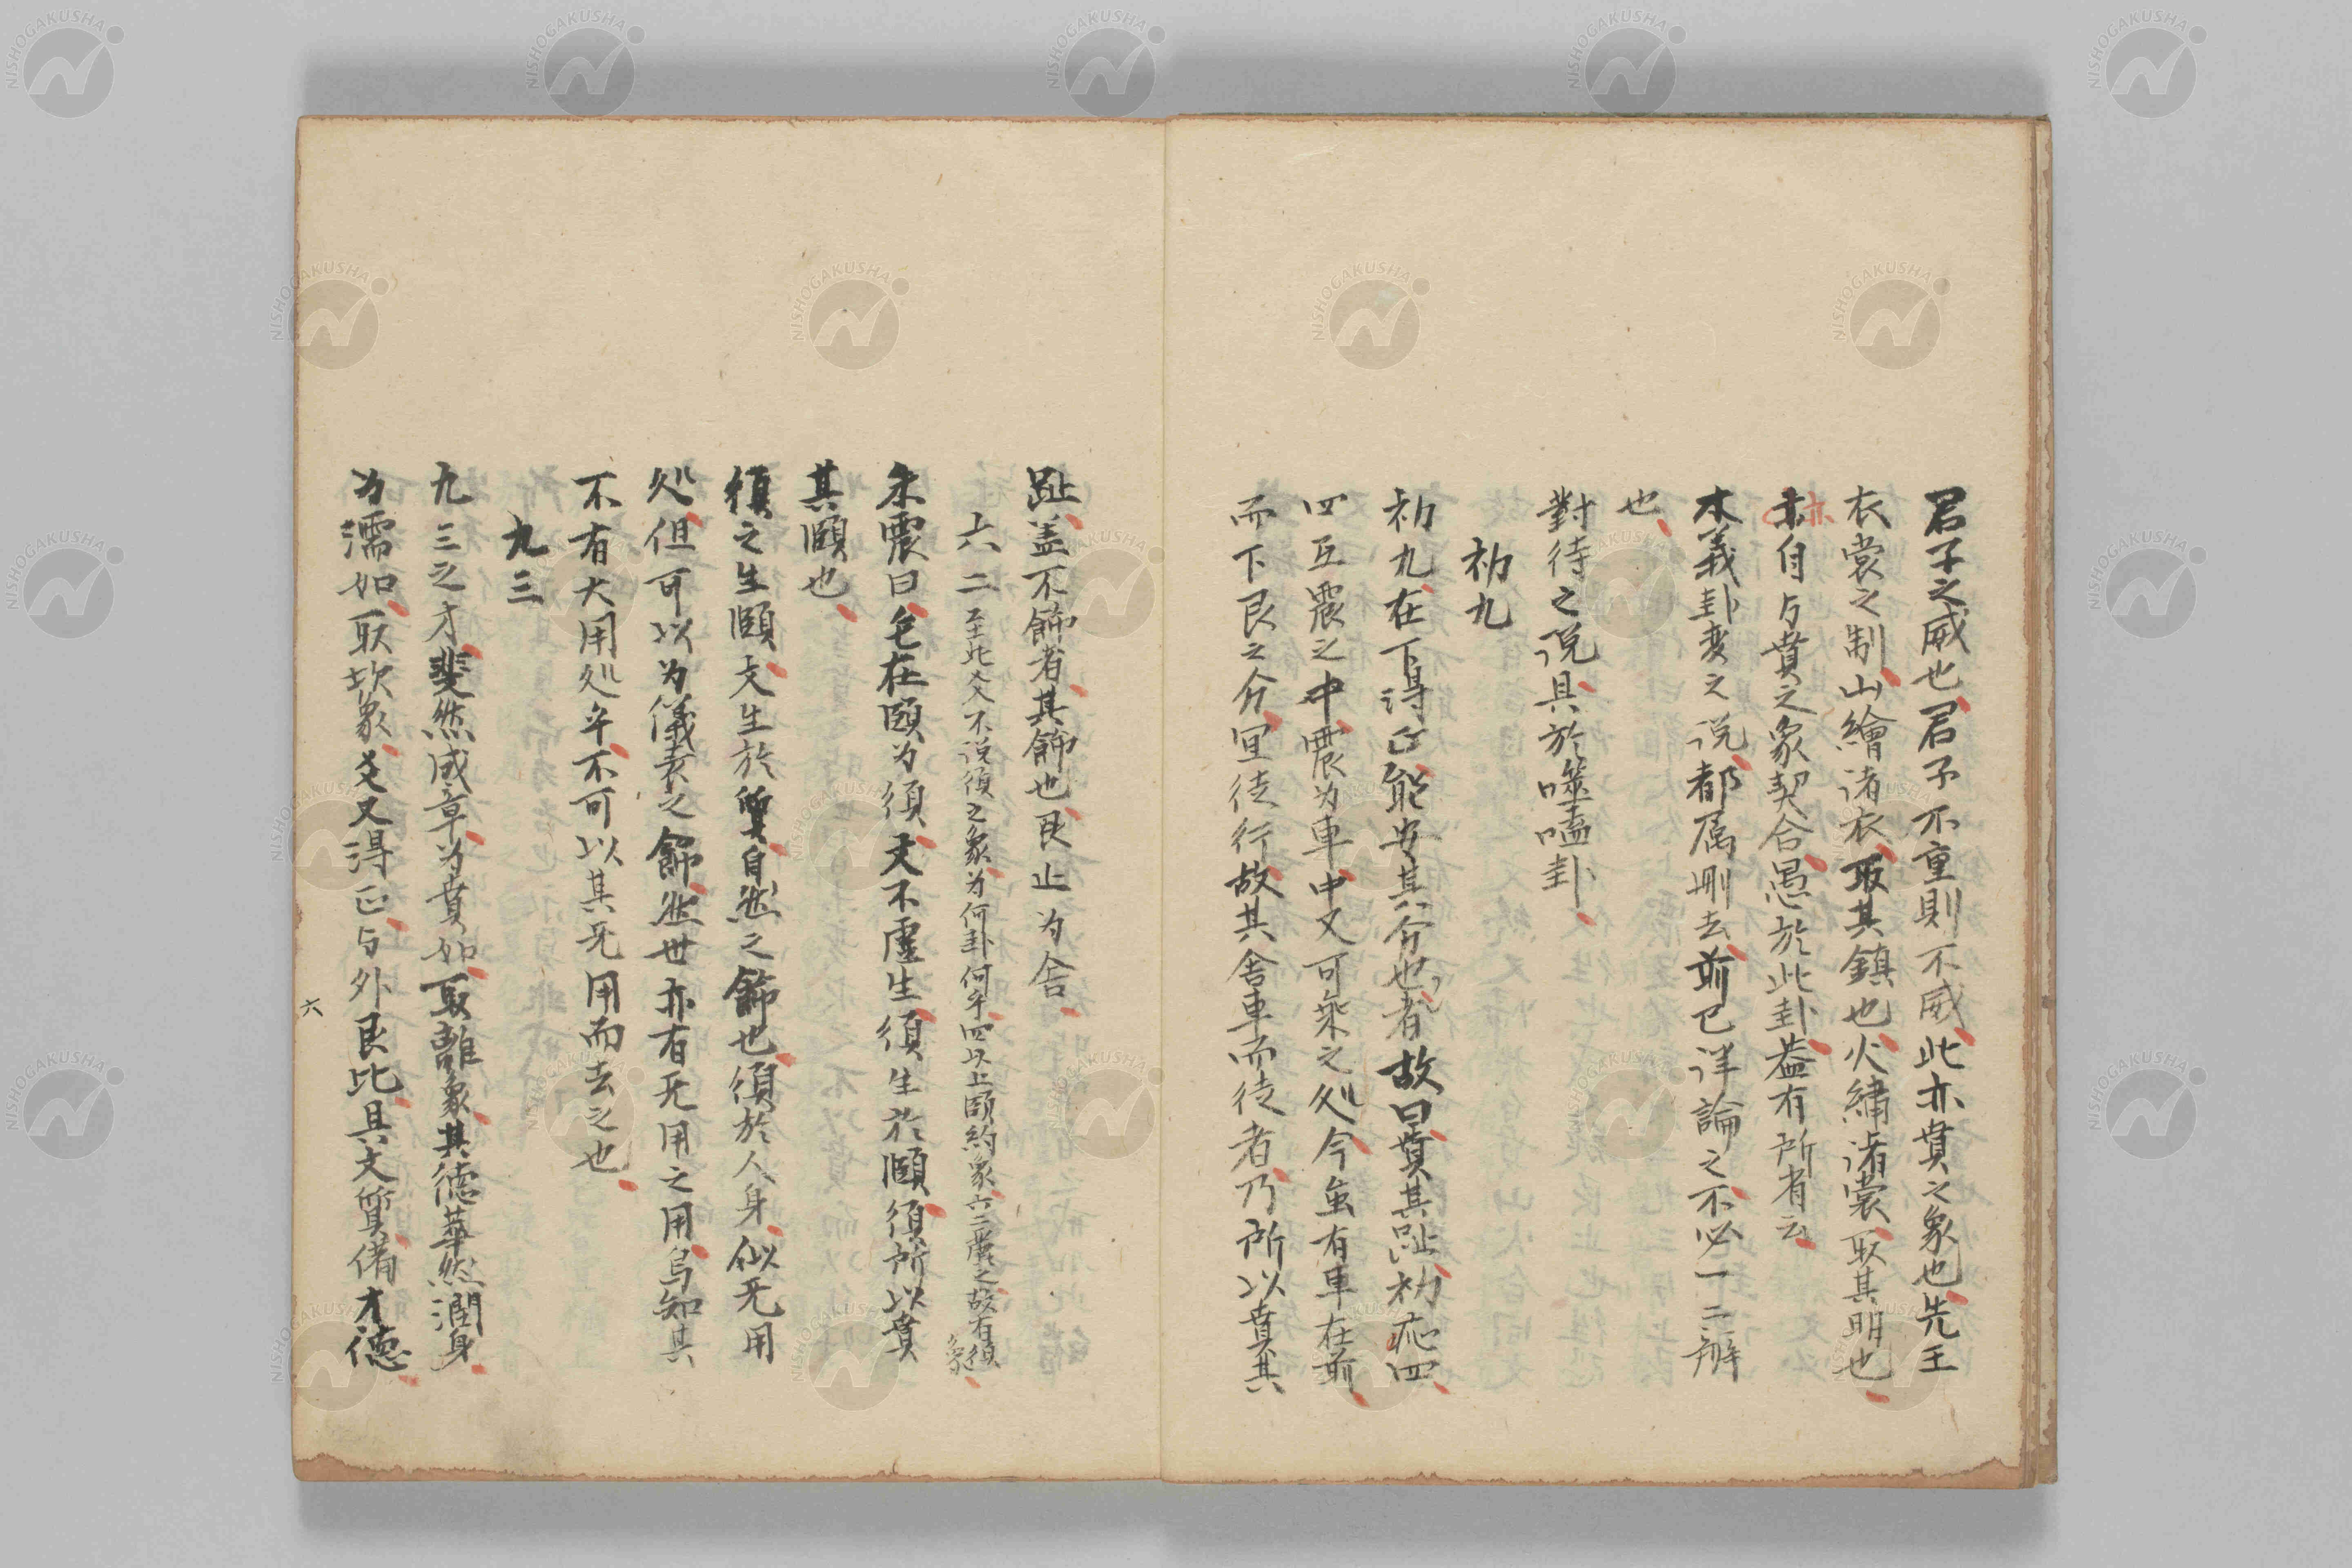 君子之威也君子不重則不威此亦賁之象也先王
衣裳之制山繪诸衣取其鎮也火繡诸裳取其明也
亦自与賁之象契合愚於此卦蓋有所省云
亦
本義卦变之说都属刪去前已详論之不必一二辨
也
對待之说具於噬嗑卦
初九
初九在下得正能安其分也者故曰賁其趾初应四
四互震之中震为車中又可乘之処今虽有車在前
而下艮之分宜徒行故其舍車而徒者乃所以賁其
趾盖不飾者其飾也艮止为舍
六二至此爻不说須之象为何卦何乎四以上頤約象六二麗之故有須象
朱震曰毛在頤为須夫不虚生須生於頤須所以賁
其頤也
須之生頤夫生於質自然之飾也須於人身似无用
処但可以为儀表之飾然世亦有无用之用烏知其
不有大用処乎不可以其无用而去之也
九三
九三之才斐然成章为賁如取離象其德華然潤身
为濡如取坎象爻又得正与外艮比具文質備才德
六
NISHOGAKUSHA